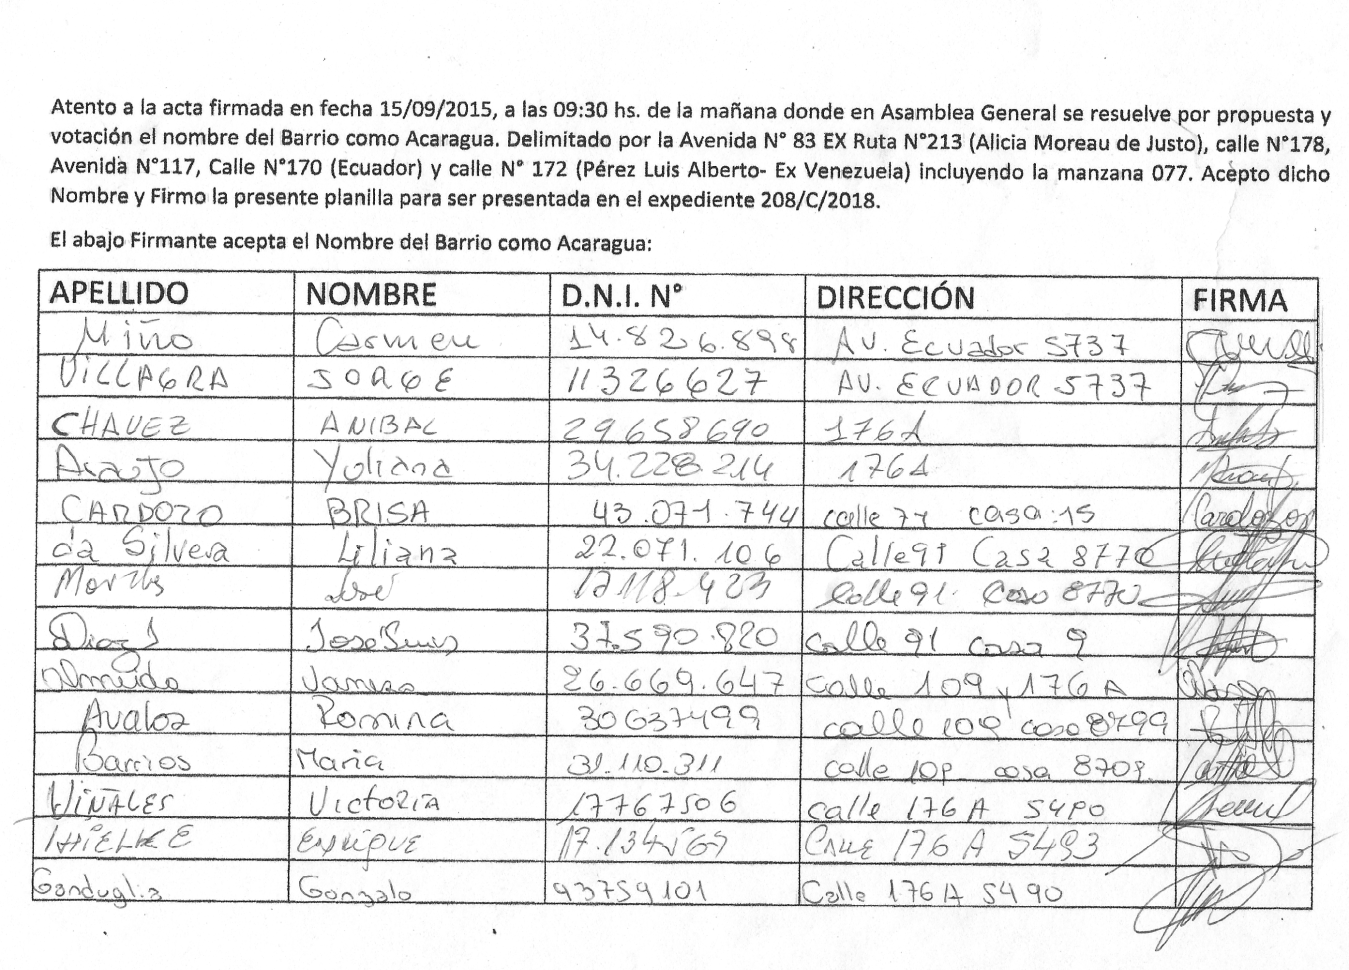 Atento a la acta firmada en fecha 15/09/2015, a las 09:30 hs. de la mañana donde en Asamblea General se resuelve por propuesta y
votación el nombre del Barrio como Acaragua. Delimitado por la Avenida N° 83 EX Ruta N°213 (Alicia Moreau de Justo), calle N°178,
Avenida N°117, Calle N°170 (Ecuador) y calle N° 172 (Pérez Luis Alberto- Ex Venezuela) incluyendo la manzana 077. Acepto dicho
Nombre y Firmo la presente planilla para ser presentada en el expediente 208/C/2018.
El abajo Firmante acepta el Nombre del Barrio como Acaragua:
APELLIDO NOMBRE D.N.I. N° DIRECCIÓN FIRMA
Miño Carmen 14.826.898 AV. Ecuador 5737
VILLAGRA JORGE 11326627 AV. ECUADOR 5737
CHAVEZ ANIBAL 29658690 176A
Araujo Yuliana 34.228.214 176A
CARDOZO BRISA 43.071.744 calle 77 casa 15
da Silvera Liliana 22.071.106 Calle 91 Casa 8770
José calle 91 Casa 8770
José Luis 37.590.820 calle 91 casa 9
Almeida Vanesa 26.669.647 Calle 109 y 176 A
Avaloz Romina 30637499 calle 109 casa 8799
Barrios Maria 31.110.311 calle 109 casa 8709
VIÑALES VICTORIA 17767506 calle 176 A 5490
ENRIQUE 17.134.569 CALLE 176 A 5493
Ganduglia Gonzalo 93759101 Calle 176 A 5490